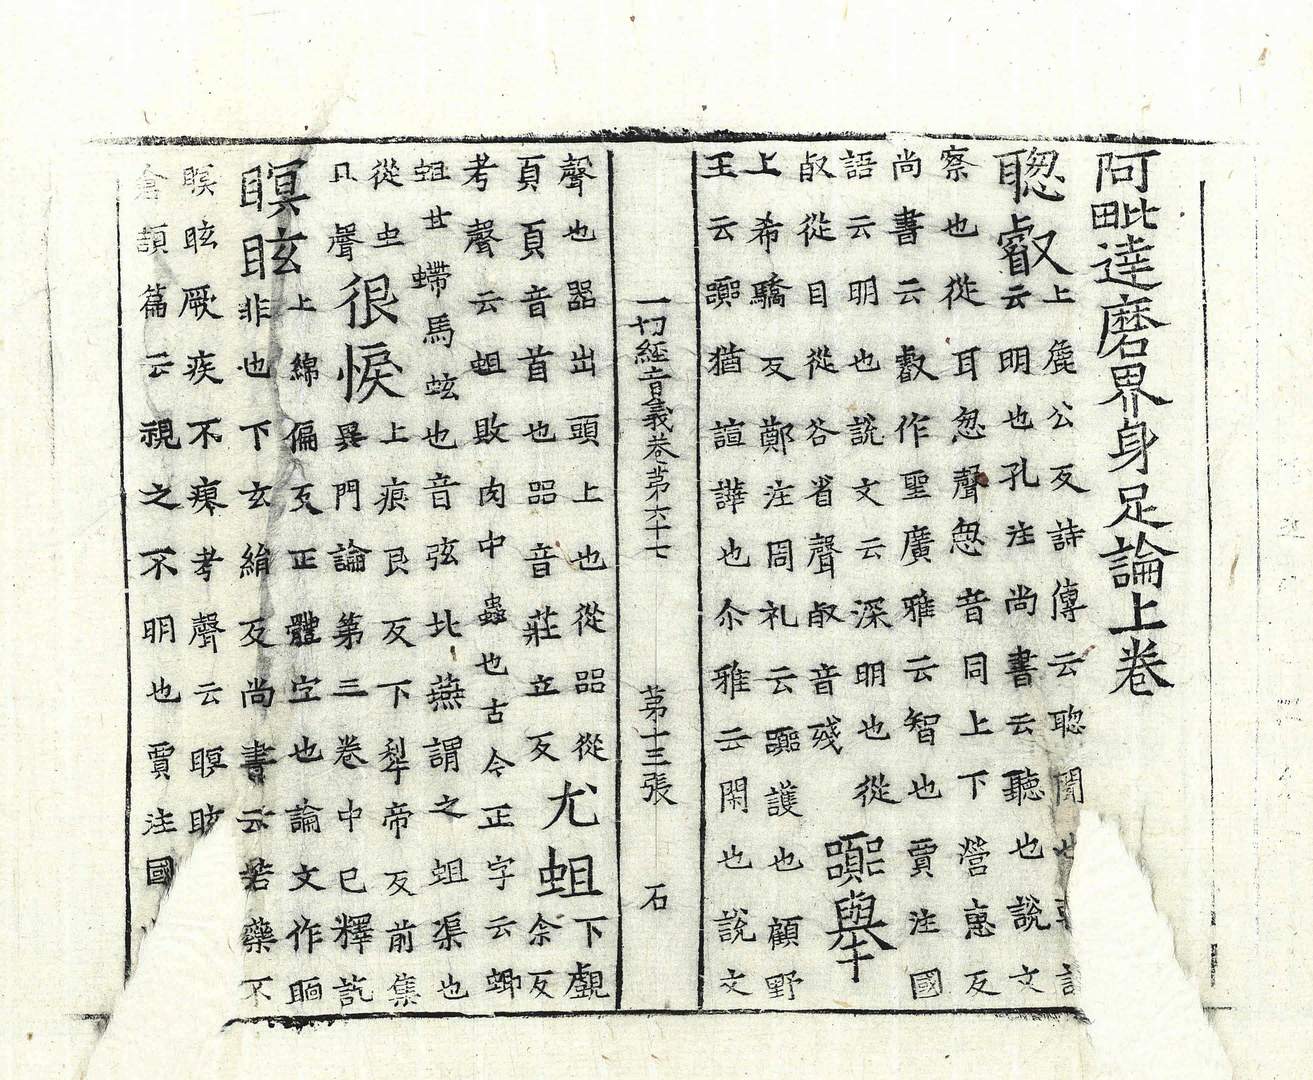 阿毗達磨界身足論上卷
聦叡上麁公反詩傳云聦聞也
云明也孔注尚書云聽也說文
察也從耳忽聲忽音同上下營惠反
尚書云叡作聖廣雅云智也賈注國
語云明也說文云深明也從
㕡從目從谷省聲㕡音殘囂舉
上希驕反鄭注周礼云囂護也顧野
王云囂猶諠譁也尒雅云閑也說文
一切經音義卷第六十七 第十三張 石
聲也㗊出頭上也從㗊從
頁頁音首也㗊音莊立反尤蛆下覷余反
考聲云蛆敗肉中蟲也古今正字云蝍
蛆甘螮馬蚿也音弦北燕謂之蛆渠也
從虫
且聲很悷上痕艮反下犁帝反前集異門論第三卷中已釋訖
瞑眩上綿偏反正體字也論文作眴
非也下玄絹反尚書云若藥不
瞑眩厥疾不瘳考聲云瞑眩
倉頡篇云視之不明也賈注國